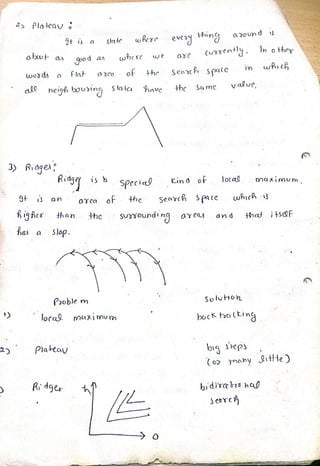 2) Plateau :
It is a state where every thing around is
about as good as where we are currently. In other
words a flat area of the search space in which
all neighbouring states have the same value.
3) Ridges:
Ridges is a special kind of local maximum.
It is an area of the search space which is
higher than the surrounding areas and that itself
has a slop.
Problem solution
1) local maximum back tracking
2) Plateau big steps
(or many little)
Ridges bidirectional
search
h
O